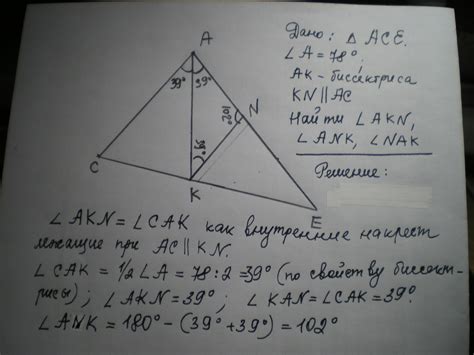 Дано: △ ACE.
∠A = 78°.
AK - биссектриса
KN ∥ AC
Найти ∠AKN,
∠ANK, ∠NAK
Решение:
A
39° 39°
102° N
39°
C
K
E
∠AKN = ∠CAK как внутренние накрест
лежащие при AC ∥ KN.
∠CAK = 1/2 ∠A = 78:2 = 39° (по свойству биссект-
рисы); ∠AKN = 39°; ∠KAN = ∠CAK = 39°.
∠ANK = 180° - (39° + 39°) = 102°